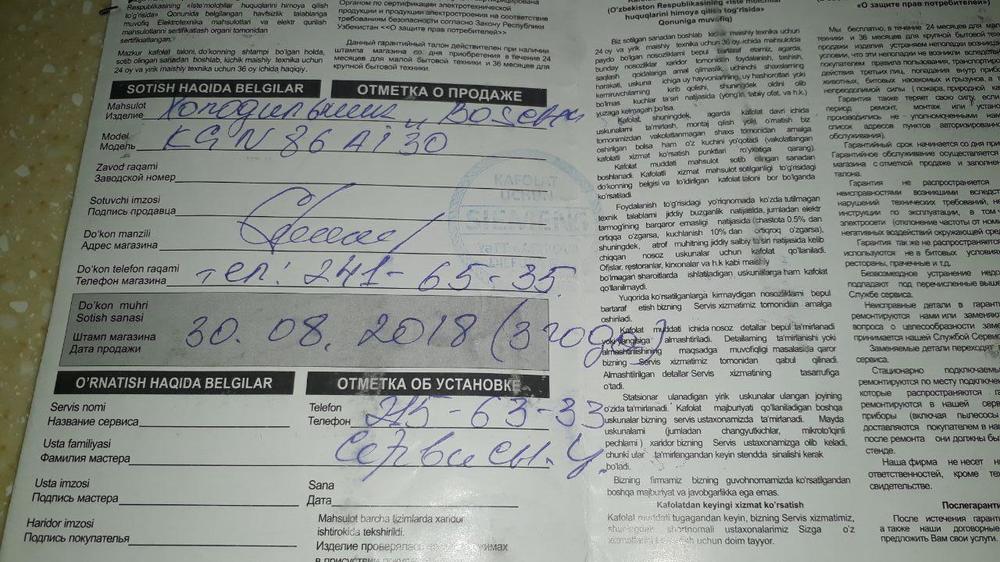 Respublikasining «Iste'molchilar huquqlarini himoya qilish
to'g'risida» Qonunida belgilangan havfsizlik talablariga
muvofiq Elektrotexnika mahsulotlari va elektr qurilish
mahsulotlarini sertifikatlash organi tomonidan
sertifikatlangan.
Mazkur kafolat taloni, do'konning shtampi bo'lgan holda,
sotib olingan sanadan boshlab, kichik maishiy texnika uchun
24 oy va yirik maishiy texnika uchun 36 oy ichida haqiqiy.
Органом по сертификации электротехнической
продукции и продукции электростроения на соответствие
требованиям безопасности согласно Закону Республики
Узбекистан <<О защите прав потребителей>>
Данный гарантийный талон действителен при наличии
штампа магазина со дня приобретения в течение 24
месяцев для малой бытовой техники и 36 месяцев для
крупной бытовой техники.
SOTISH HAQIDA BELGILAR
ОТМЕТКА О ПРОДАЖЕ
Mahsulot
Изделие Холодильник и Bosch
Model
Модель KGN 86 AI 30
Zavod raqami
Заводской номер
Sotuvchi imzosi
Подпись продавца
Do'kon manzili
Адрес магазина
KAFOLAT
UCHUN
Do'kon telefon raqami
Телефон магазина тел: 241-65-35
Do'kon muhri
Sotish sanasi
Штамп магазина
Дата продажи 30.08.2018 (3 года)
O'RNATISH HAQIDA BELGILAR
ОТМЕТКА ОБ УСТАНОВКЕ
Servis nomi
Название сервиса
Telefon
Телефон 215-63-33
Usta familiyasi
Фамилия мастера
Usta imzosi
Подпись мастера
Sana
Дата
Haridor imzosi
Подпись покупателья
Mahsulot barcha tizimlarda xaridor
ishtirokida tekshirildi.
Изделие проверялось
в присутствии
(O'zbekiston Respublikasining «Iste'molchilar
huquqlarini himoya qilish to'g'risida»
Qonuniga muvofiq)
Biz sotilgan sanadan boshlab kichik maishiy texnika uchun
24 oy va yirik maishiy texnika uchun 36 oy ichida mahsulotda
paydo bo'lgan nosozliklarni bepul bartaraf etamiz, agarda,
bunday nosozliklar xaridor tomonidan foydalanish, tashish,
saqlash qoidalariga amal qilmaslik, uchinchi shaxslarning
harakati, uskuna ichiga uy hayvonlarining, uy hasharotlari yoki
kemiruvchilarning kirib qolishi, shuningdek oldini olib
bo'lmas kuchlar ta'siri natijasida (yong'in, tabiiy ofat, va h.k.)
yuzaga kelmagan bo'lsa.
Kafolat, shuningdek, agarda kafolat davri ichida
uskunalarni ta'mirlash, montaj qilish yoki o'rnatish biz
tomonimizdan vakolatlanmagan shaxs tomonidan amalga
oshirilgan bo'lsa ham o'z kuchini yo'qotadi (vakolatlangan
kafolatli xizmat ko'rsatish punktlari ro'yxatiga qarang).
Kafolat muddati mahsulot sotib olingan sanadan
boshlanadi. Kafolatli xizmat mahsulot sotilganligi to'g'risida
do'konning belgisi va to'ldirilgan kafolat taloni bor bo'lganda
ko'rsatiladi
Foydalanish to'g'risidagi yo'riqnomada ko'zda tutilmagan
texnik talablarni jiddiy buzganlik natijasida, jumladan elektr
tarmog'ining barqaror emasligi natijasida (chastota 0.5% dan
ortiqqa o'zgarsa, kuchlanish 10% dan ortiqroq o'zgarsa),
shuningdek, atrof muhitning jiddiy salbiy ta'siri natijasida kelib
chiqqan nosoz uskunalar uchun kafolat qo'llanilmaydi.
Ofislar, restoranlar, kirxonalar va h.k kabi maishiy
bo'lmagan sharoitlarda ishlatiladigan uskunalarga ham kafolat
qo'llanilmaydi.
Yuqorida ko'rsatilganlarga kirmaydigan nosozliklarni bepul
bartaraf etish bizning Servis xizmatimiz tomonidan amalga
oshiriladi.
Kafolat muddati ichida nosoz detallar bepul ta'mirlanadi
yoki yangisiga almashtiriladi. Detallarning ta'mirlanishi yoki
almashtirilishining maqsadga muvofiqligi masalasida qaror
bizning Servis xizmatimiz tomonidan qabul qilinadi.
Almashtirilgan detallar Servis xizmatining tasarrufiga
o'tadi.
Statsionar ulanadigan yirik uskunalar ulangan joyining
o'zida ta'mirlanadi. Kafolat majburiyati qo'llaniladigan boshqa
uskunalar bizning servis ustaxonamizda ta'mirlanadi. Mayda
uskunalarni (jumladan changyutkichlar, mikroto'lqinli
pechlarni) xaridor bizning Servis ustaxonamizga olib keladi,
chunki ular ta'mirlangandan keyin stendda sinalishi kerak
bo'ladi.
Bizning firmamiz bizning guvohnomamizda ko'rsatilgandan
boshqa majburiyat va javobgarlikka ega emas.
Kafolatdan keyingi xizmat ko'rsatish
Kafolat muddati tugagandan keyin, bizning Servis xizmatimiz,
shuningdek shartnomali ustaxonalarimiz Sizga o'z
xizmatlarini ko'rsatish uchun doim tayyor.
«О защите прав потребителей»)
Мы бесплатно, в течение 24 месяцев для
техники и 36 месяцев для крупной бытовой техники
продажи изделия устраняем неполадки возникшие
условии, что эти неполадки не возникли вследствие
покупателем правил пользования, транспортировки
действия третьих лиц, попадания внутрь
животных, бытовых насекомых и грызунов, а
непреодолимой силы (пожара, природной
Гарантия также теряет свою силу, если
период ремонт, монтаж или
производились не уполномоченными нами
список адресов пунктов авторизированного
обслуживания).
Гарантийный срок начинается со дня
Гарантийное обслуживание осуществляется
магазина с отметкой о продаже и заполненного
талона.
Гарантия не распространяется
неисправностями возникшими вследствие
нарушений технических требований, не
инструкции по эксплуатации, в том
электросети (отклонение частоты от
негативных воздействий окружающей среды
Гарантия также не распространяется
используются не в бытовых условиях
рестораны, прачечные и т.д.
Безвозмездное устранение
подпадают под перечисленные выше
Службе сервиса.
Неисправные детали в
ремонтируются нами или
вопроса о целесообразности
принимается нашей Службой Сервиса
Заменяемые детали переходят
сервиса.
Стационарно подключаемые
ремонтируются по месту
которые распространяются
ремонтируются в нашей
приборы (включая пылесосы
доставляются покупателем в
после ремонта они должны
стенде.
Наша фирма не несет
ответственностей, кроме
свидетельстве.
Послегарантийное
После истечения гарантии
а также наши договорные
предложить Вам свои услуги.